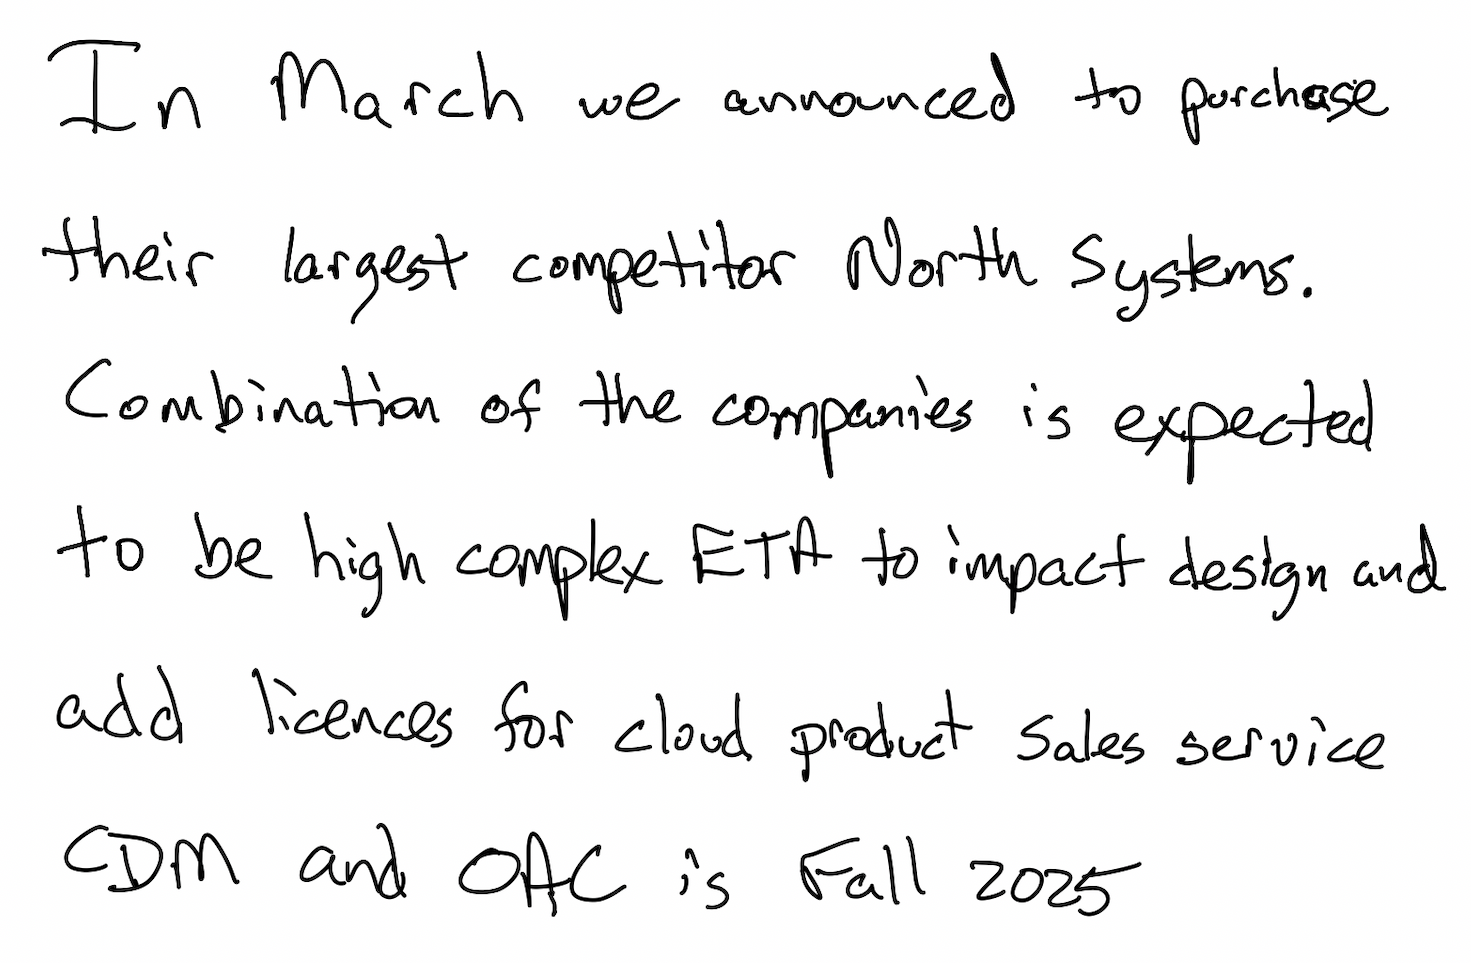 In March we announced to purchase
their largest competitor North Systems.
Combination of the companies is expected
to be high complex ETA to impact design and
add licences for cloud product sales service
CDM and OAC is Fall 2025